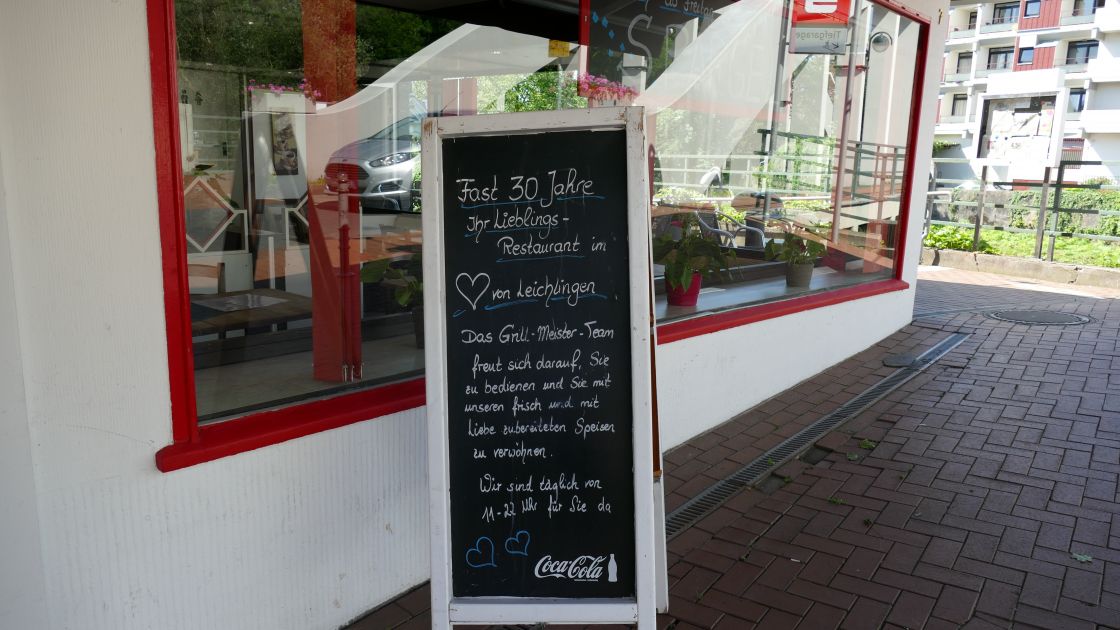 ab Freitag
S
Tiefgarage
Fast 30 Jahre
Ihr Lieblings-
Restaurant im
von Leichlingen
Das Grill-Meister-Team
freut sich darauf, Sie
zu bedienen und Sie mit
unseren frisch und mit
Liebe zubereiteten Speisen
zu verwöhnen.
Wir sind täglich von
11-22 Uhr für Sie da
Coca-Cola